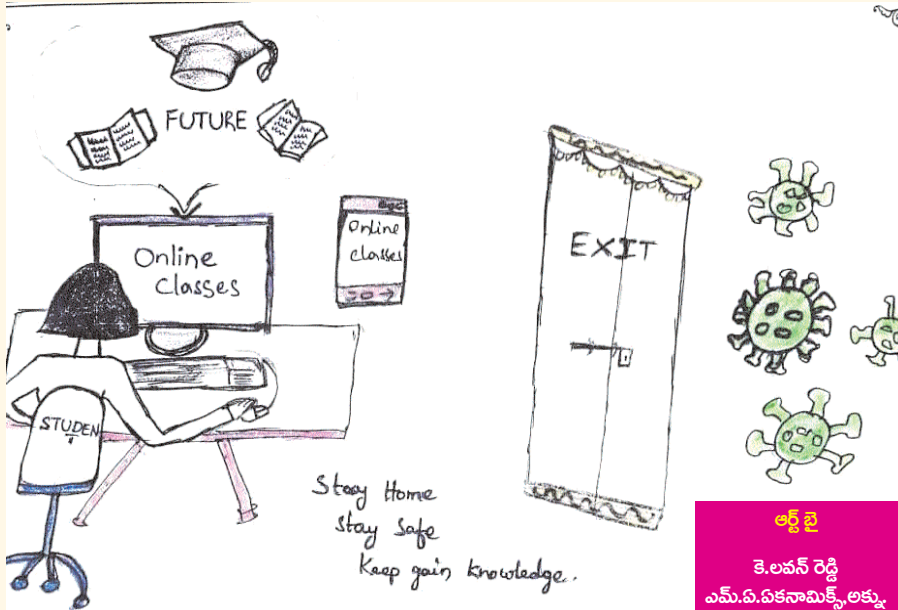 FUTURE
Online
Classes
Online
classes
EXIT
STUDEN
T
Stay Home
Stay Safe
Keep gain knowledge.
ఆర్ట్ బై
కె.లవన్ రెడ్డి
ఎమ్.ఏ.ఏకనామిక్స్,అక్ను.